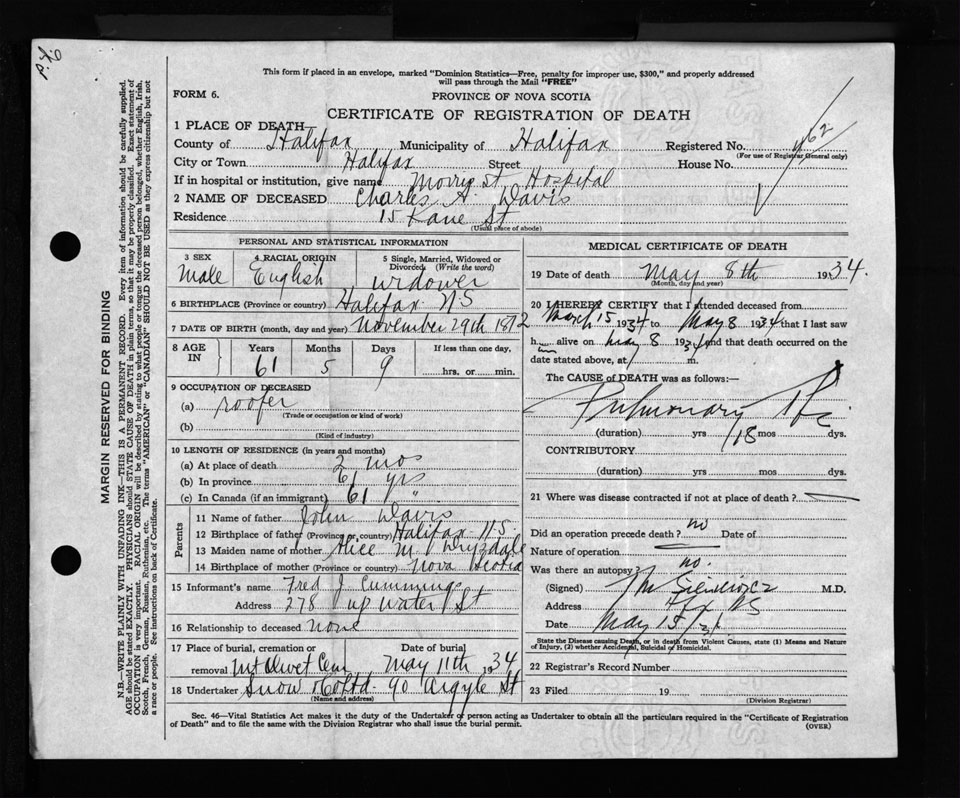 This form if placed in an envelope, marked "Dominion Statistics—Free, penalty for improper use, $300," and properly addressed
will pass through the Mail "FREE"
FORM 6.
PROVINCE OF NOVA SCOTIA
CERTIFICATE OF REGISTRATION OF DEATH
1 PLACE OF DEATH—
County of Halifax Municipality of Halifax Registered No. 462
(For use of Registrar General only)
City or Town Halifax Street House No.
If in hospital or institution, give name Morris St Hospital
2 NAME OF DECEASED Charles A. Davis
Residence 15 Kane St
(Usual place of abode)
PERSONAL AND STATISTICAL INFORMATION
3 SEX 4 RACIAL ORIGIN 5 Single, Married, Widowed or
Divorced. (Write the word)
Male English Widower
6 BIRTHPLACE (Province or country) Halifax N S
7 DATE OF BIRTH (month, day and year) November 29th 1872
8 AGE IN Years Months Days If less than one day,
61 5 9 hrs. or min.
9 OCCUPATION OF DECEASED
(a) roofer
(Trade or occupation or kind of work)
(b)
(Kind of industry)
10 LENGTH OF RESIDENCE (in years and months)
(a) At place of death 2 mos
(b) In province 61 yrs
(c) In Canada (if an immigrant) 61 "
Parents
11 Name of father John Davis
12 Birthplace of father (Province or country) Halifax N.S.
13 Maiden name of mother Alice M Dryzdale
14 Birthplace of mother (Province or country) Nova Scotia
15 Informant's name Fred J Cummings
Address 278 up Water St
16 Relationship to deceased none
17 Place of burial, cremation or Date of burial
removal Mt Olivet Cem May 11th 1934
18 Undertaker Snow & Co Ltd. 90 Argyle St
(Name and address)
MEDICAL CERTIFICATE OF DEATH
19 Date of death May 8th 1934.
(Month, day and year)
20 I HEREBY CERTIFY that I attended deceased from
March 15 1934 to May 8 1934 that I last saw
him alive on May 8 1934 and that death occurred on the
date stated above, at m.
The CAUSE of DEATH was as follows:—
Pulmonary
(duration) yrs 18 mos dys.
CONTRIBUTORY
(duration) yrs. mos. dys.
21 Where was disease contracted if not at place of death?
Did an operation precede death? no Date of
Nature of operation
Was there an autopsy? no.
(Signed) M.D.
Address Hfx NS
Date May 15/34
State the Disease causing Death, or in death from Violent Causes, state (1) Means and Nature
of Injury, (2) whether Accidental, Suicidal or Homicidal.
22 Registrar's Record Number
23 Filed 19
(Division Registrar)
Sec. 46—Vital Statistics Act makes it the duty of the Undertaker or person acting as Undertaker to obtain all the particulars required in the "Certificate of Registration
of Death" and to file the same with the Division Registrar who shall issue the burial permit.
(OVER)
MARGIN RESERVED FOR BINDING
N.B.—WRITE PLAINLY WITH UNFADING INK—THIS IS A PERMANENT RECORD. Every item of information should be carefully supplied.
AGE should be stated EXACTLY. PHYSICIANS should STATE CAUSE OF DEATH in plain terms, so that it may be properly classified. Exact statement of
OCCUPATION is very important. RACIAL ORIGIN will be described by stating to what people or tongue the deceased person belonged, whether English, Irish,
Scotch, French, German, Russian, Ruthenian, etc. The terms "AMERICAN" or "CANADIAN" SHOULD NOT BE USED as they express citizenship but not
a race or people. See instructions on back of Certificate.